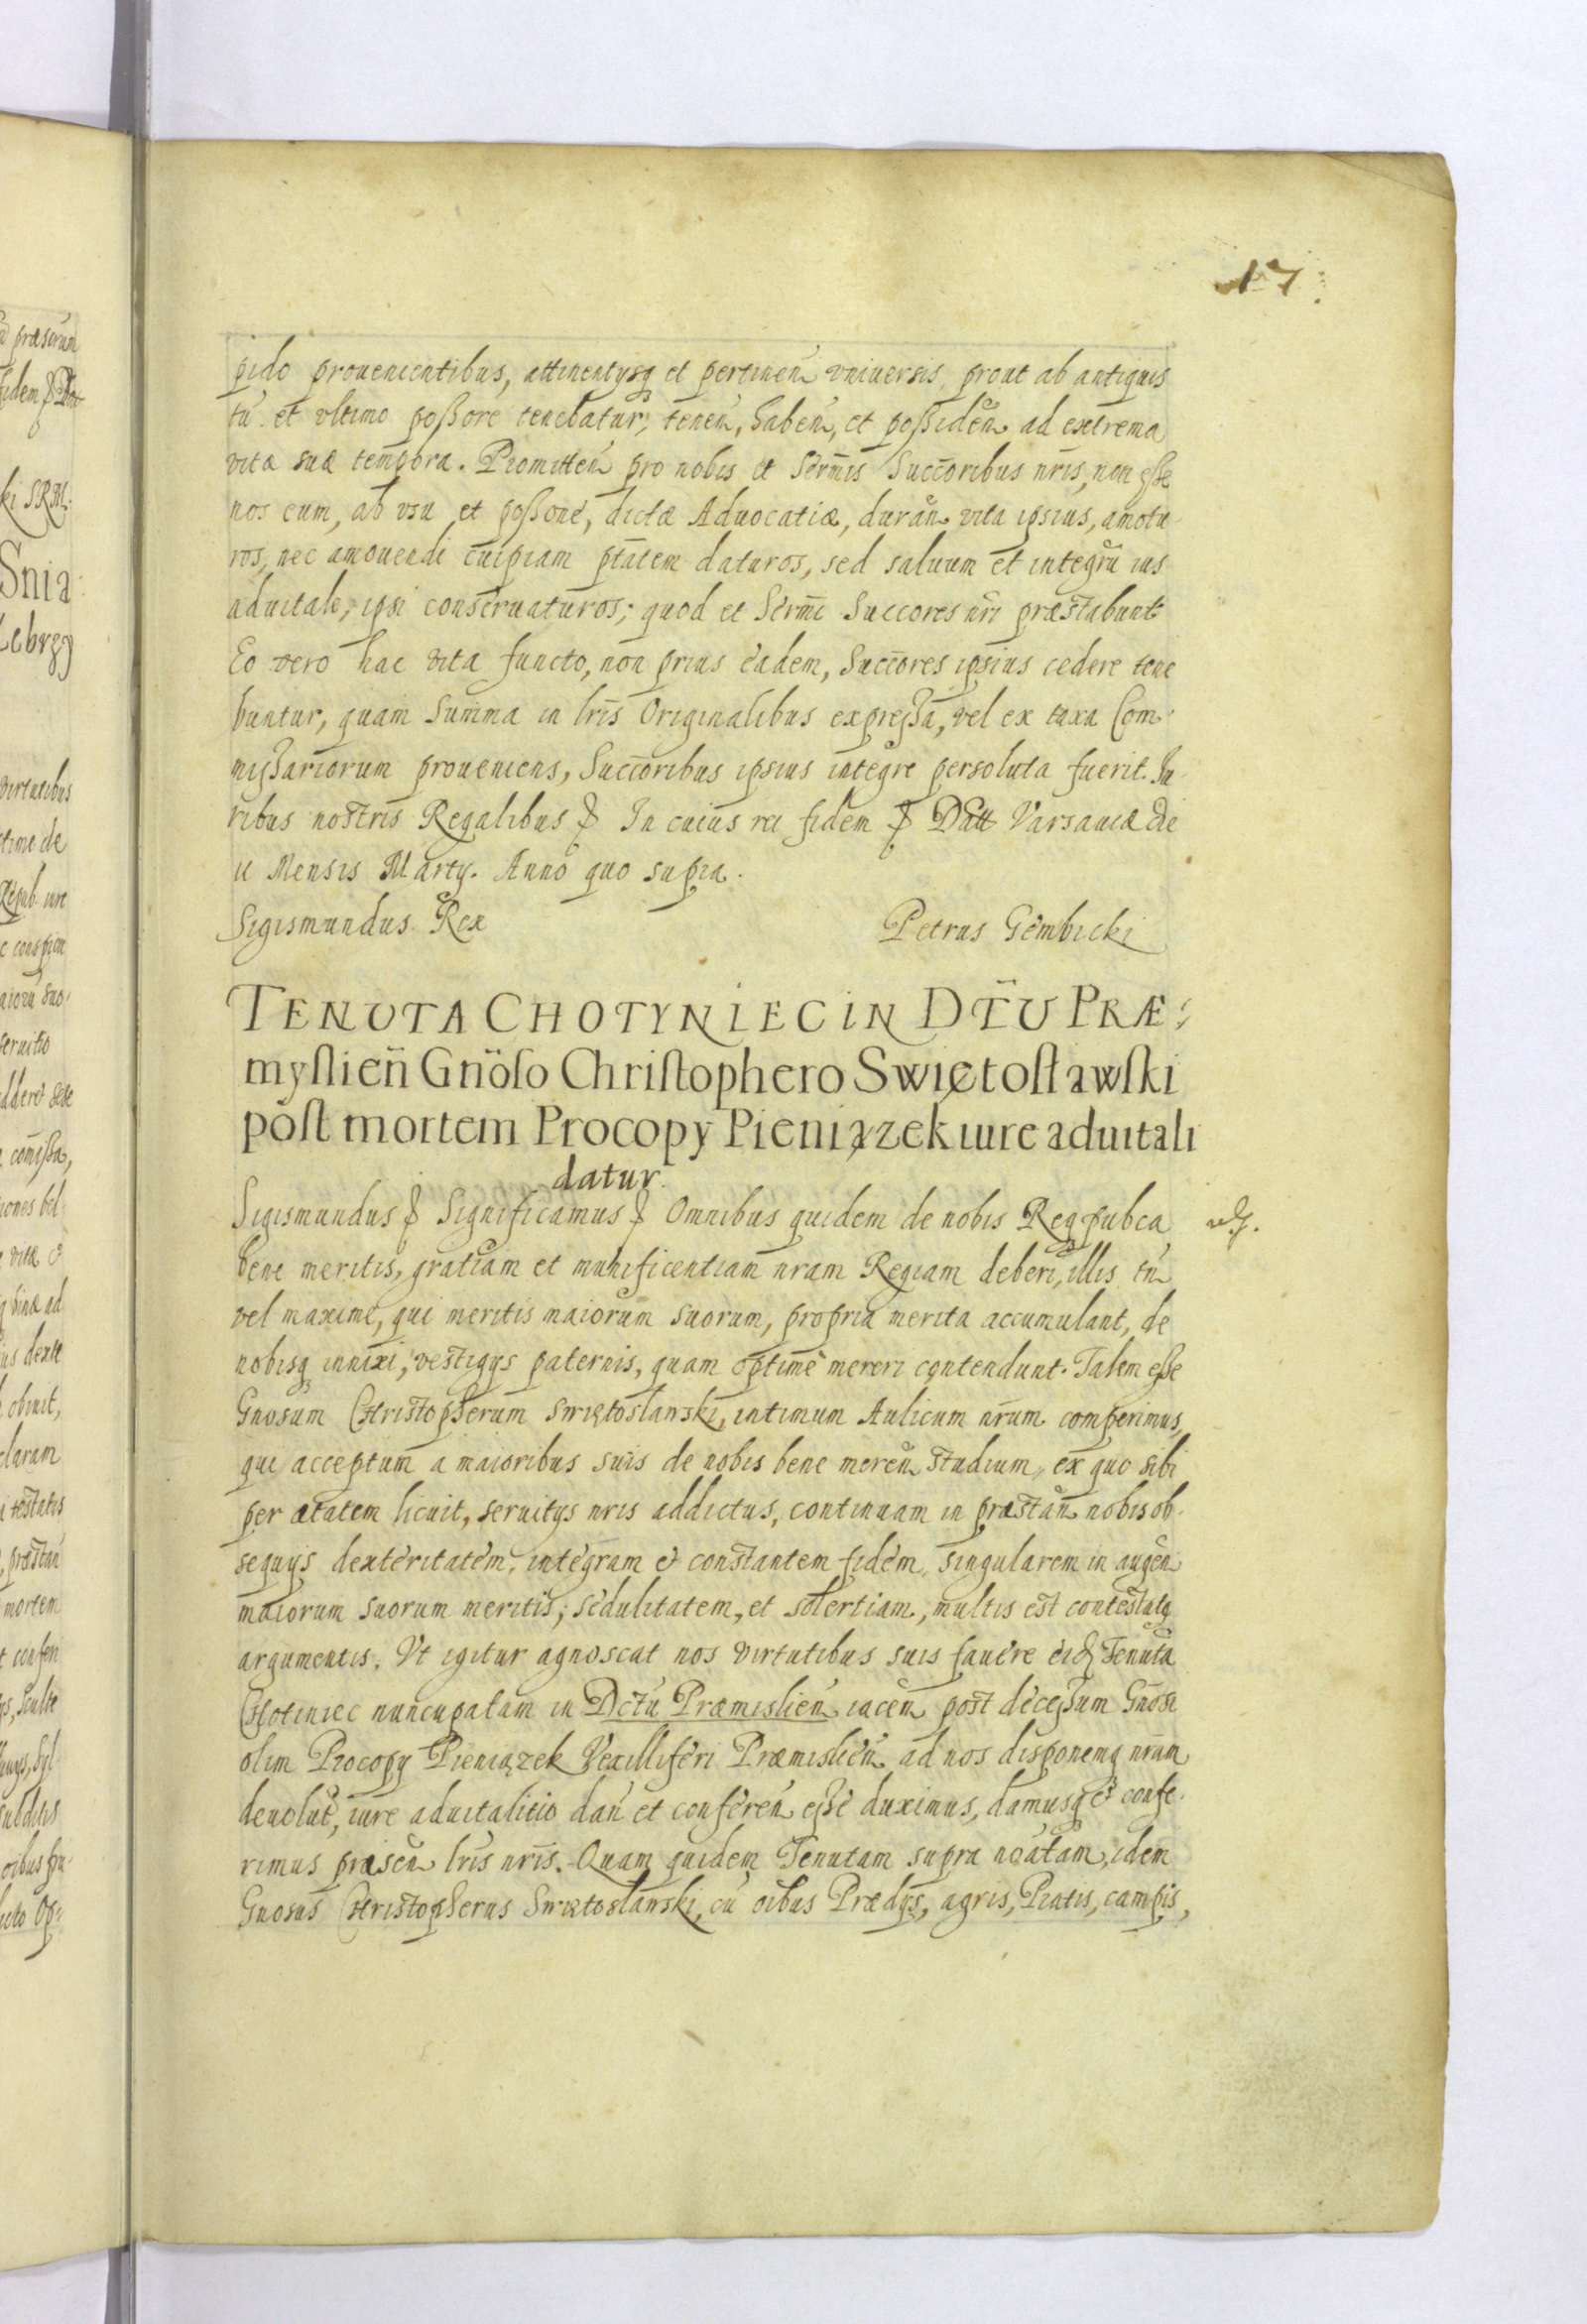 17
pido prouenientibus, attinentysq et pertinen vniuersis, prout ab antiquis
tu et vltimo possore tenebatur, tenen, haben, et possiden ad extrema
vitæ suæ tempora. Promitten pro nobis et Sermis Succoribus nris, non esse
nos eum, ab vsu et possone, dictæ Aduocatiæ, duran vita ipsius, amotu
ros, nec amouendi cuipiam ptatem daturos, sed saluum et integru ius
aduitale, ipsi conseruaturos; quod et Sermi Succores nri præstabunt
Eo vero hac vita functo, non prius eadem, Succores ipsius cedere tene
buntur, quam Summa in lris Originalibus expressa, vel ex taxa Com
missariorum proueniens, Succoribus ipsius integre persoluta fuerit. Iu
ribus nostris Regalibus & In cuius rei fidem & Datt Varsauiæ die
ii Mensis Marty. Anno quo supra.
Sigismundus Rex Petrus Gembicki
TENUTA CHOTYNIEC IN DTU PRÆ:
myslien Gnoso Christophero Swiętosławski
post mortem Procopy Pieniązek iure aduitali
datur.
Sigismundus & Significamus & Omnibus quidem de nobis Reqpubca
bene meritis, gratiam et munificentiam nram Regiam deberi, illis tn
vel maxime, qui meritis maiorum suorum, propria merita accumulant, de
nobisq innixi, vestigys paternis, quam optime mereri contendunt. Talem esse
Gnosum Christopherum Swiętoslawski, intimum Aulicum nrum comperimus,
qui acceptum a maioribus suis de nobis bene meren studium, ex quo sibi
per ætatem licuit, seruitys nris addictus, continuam in præstan nobis ob
sequys dexteritatem, integram & constantem fidem, singularem in augen
maiorum suorum meritis, sedulitatem, et solertiam, multis est contestatq
argumentis. Vt igitur agnoscat nos virtutibus suis fauere eid Tenuta
Chotiniec nuncupatam in Dctu Præmislien iacen post decessum Gnosi
olim Procopy Pieniązek Vexilliferi Præmislien ad nos disponemq nram
deuolut, iure aduitalitio dan et conferen esse duximus, damusq & confe
rimus præsen lris nris. Quam quidem Tenutam supra noatam, idem
Gnosus Christopherus Swiętoslawski, cu oibus Prædys, agris, Pratis, campis,